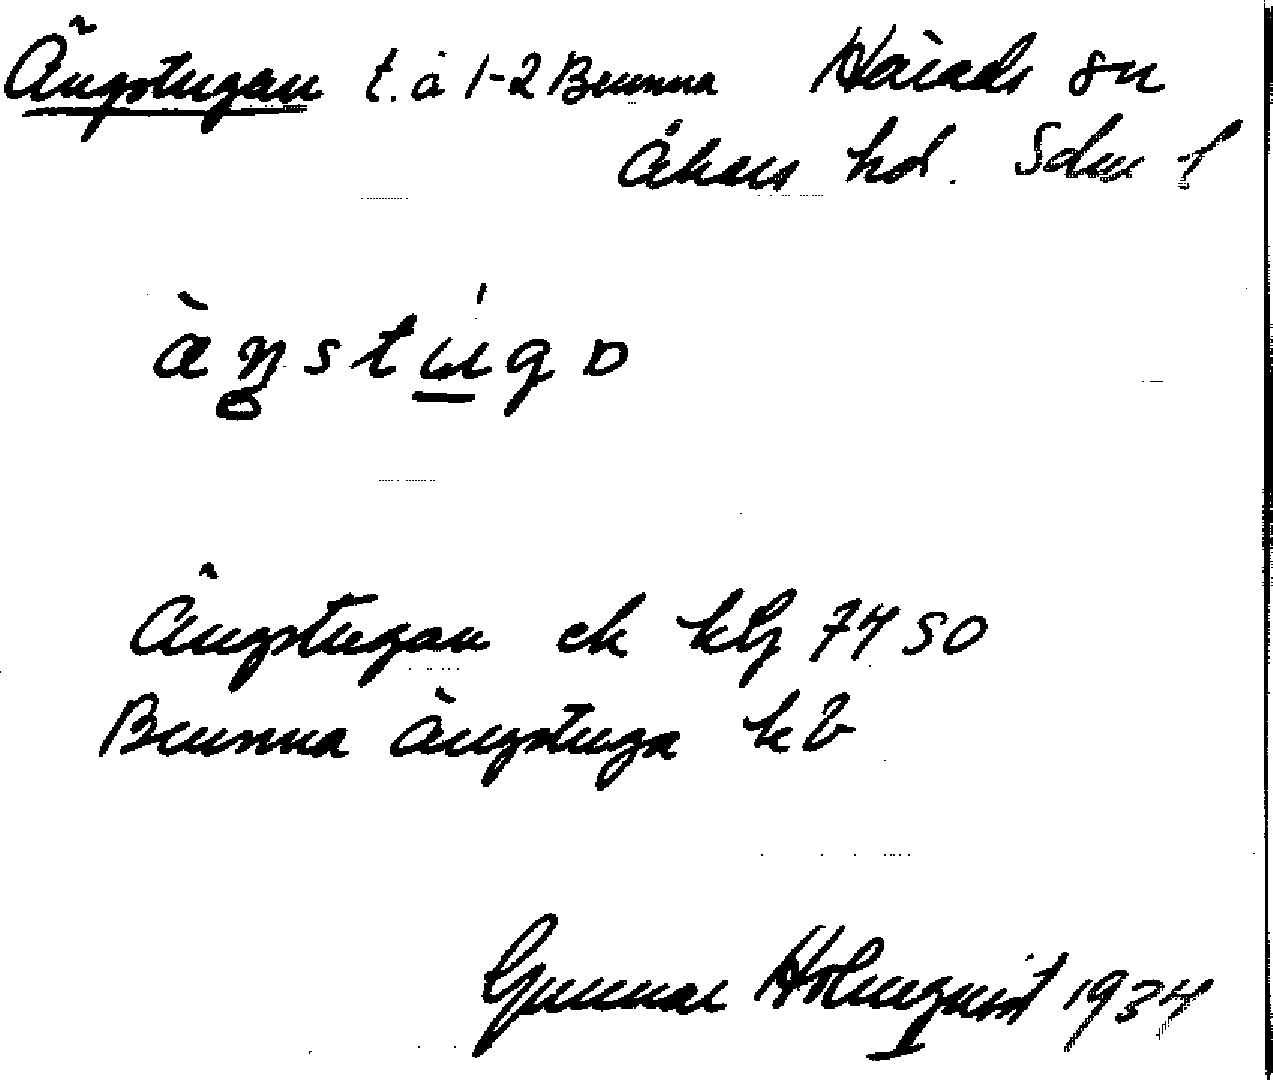 Ängstugan t. å 1-2 Brunna Hårads sn
Åkers hd. Sdm l
ä̀ŋstúgɒ
Ängstugan ek kbl 74 SO
Brunna ängstuga kb
Gunnar Holmqvist 1934